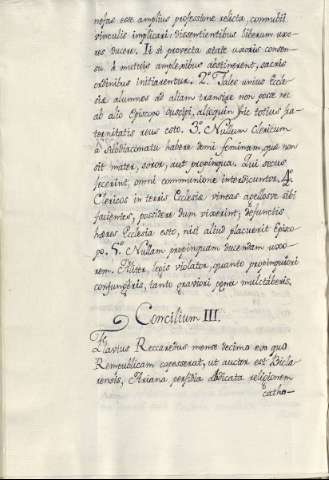 nefas esse amplius professione relicta, connubii
vinculis implicari: dissentientibus liberum uxo-
res ducere. Ii si provecta etate uxoris consen-
su à mutuis amplexibus abstinerent, sacris
ordinibus initiarentur. 2º Tales unius Eccle-
siæ alumnos ad aliam transire non posse nec
ab alio Episcopo suscipi, alioquin hic totius fra-
ternitatis reus esto. 3º Nullum Clericum
à Subdiaconatu habere domi feminam, quæ non
sit mater, soror, aut propinqua. Qui secus
fecerint, omni communione interdicuntor. 4º
Clericos in terris Ecclesiæ vineas agellosve sibi
facientes, possidere dum vixerint; defunctis
hæres Ecclesia esto, nisi aliud placuerit Episco-
po. 5º Nullam propinquam ducendam uxo-
rem. Aliter, legis violator, quanto propinquiori
conjungeris, tanto graviori pena mulctaberis.
Concilium III.
Flavius Reccaredus mense decimo ex quo
Rempublicam capesserat, ut auctor est Bicla-
rensis, Ariana perfidia abdicata religionem
catho-